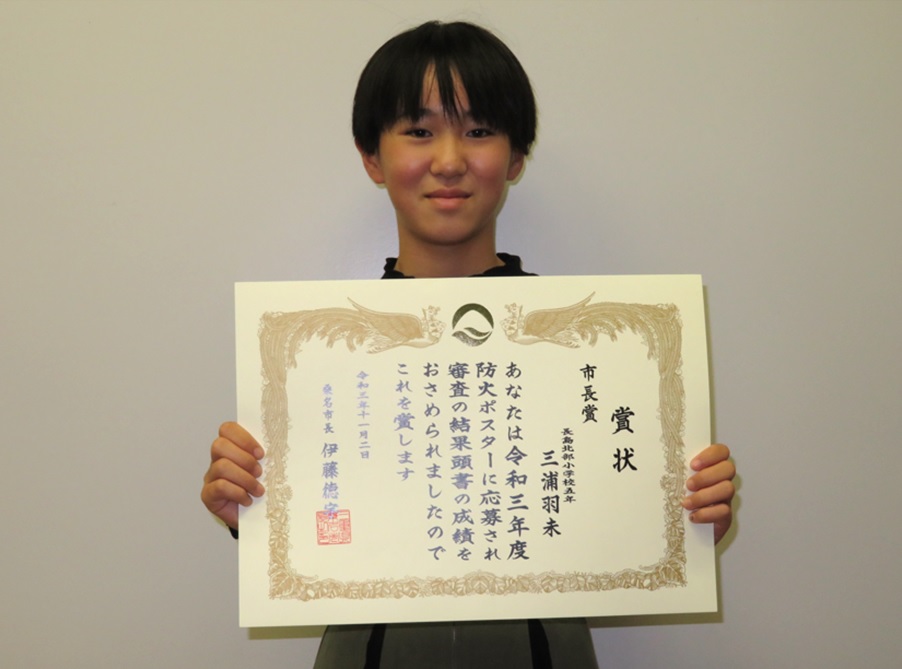 賞状
市長賞
長島北部小学校五年
三浦羽未
あなたは令和三年度
防火ポスターに応募され
審査の結果頭書の成績を
おさめられましたので
これを賞します
令和三年十一月二日
桑名市長 伊藤徳宇